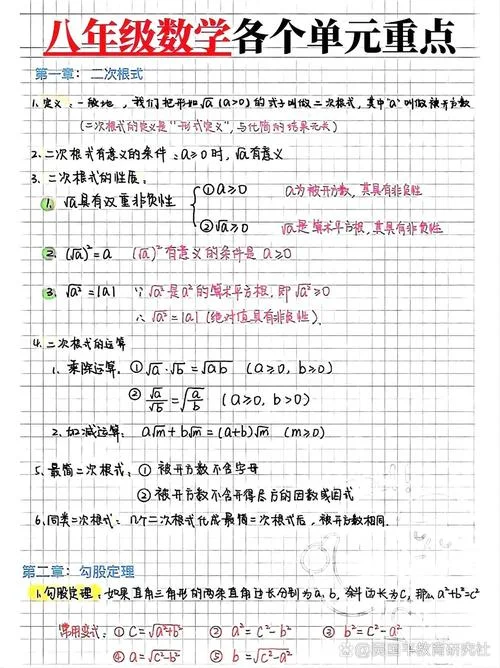 八年级数学各个单元重点
第一章：二次根式
1. 定义：一般地，我们把形如√a (a≥0) 的式子叫做二次根式，其中"a"叫做被开方数
(二次根式的定义是"形式定义"，与化简的结果无关)
2. 二次根式有意义的条件：a≥0时，√a有意义
3. 二次根式的性质。
1. √a具有双重非负性 ①a≥0 a为被开方数，其具有非负性
②√a≥0 √a是算术平方根，其具有非负性
2. (√a)²=a (√a)²有意义的条件是 a≥0
3. √a²=|a| ∵√a²是a²的算术平方根，即√a²≥0
∴√a²=|a| (绝对值具有非负性)．
4. 二次根式的运算
1、乘除运算。①√a·√b=√ab (a≥0, b≥0)
②√a/√b=√(a/b) (a≥0, b>0)
2. 加减运算： a√m+b√m=(a+b)√m (m≥0)
5. 最简二次根式：① 被开方数不含字母
② 被开方数不含开得尽方的因数或因式
6. 同类二次根式：几个二次根式化成最简二次根式后，被开方数相同．
第二章：勾股定理
1. 勾股定理：如果直角三角形的两条直角边长分别为a、b，斜边长为c，那么a²+b²=c²
常用变式：①c=√a²+b² ② a²=c²-b² ③ b²=c²-a²
④ a=√c²-b² ⑤ b=√c²-a²